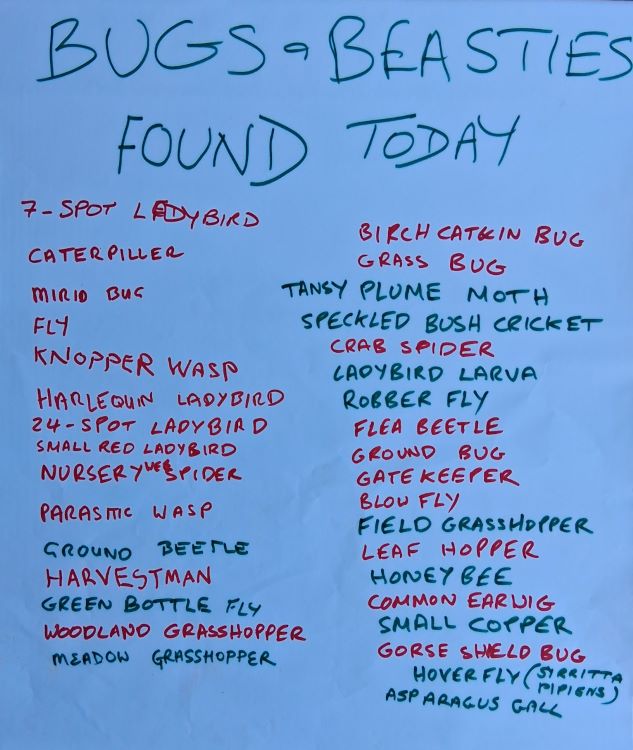 BUGS & BEASTIES
FOUND TODAY
7-SPOT LADYBIRD
CATERPILLER
MIRID BUG
FLY
KNOPPER WASP
HARLEQUIN LADYBIRD
24-SPOT LADYBIRD
SMALL RED LADYBIRD
NURSERY WEB SPIDER
PARASITIC WASP
GROUND BEETLE
HARVESTMAN
GREEN BOTTLE FLY
WOODLAND GRASSHOPPER
MEADOW GRASSHOPPER
BIRCH CATKIN BUG
GRASS BUG
TANSY PLUME MOTH
SPECKLED BUSH CRICKET
CRAB SPIDER
LADYBIRD LARVA
ROBBER FLY
FLEA BEETLE
GROUND BUG
GATEKEEPER
BLOW FLY
FIELD GRASSHOPPER
LEAF HOPPER
HONEY BEE
COMMON EARWIG
SMALL COPPER
GORSE SHIELD BUG
HOVERFLY (SIRRITTA
PIPIENS)
ASPARAGUS GALL